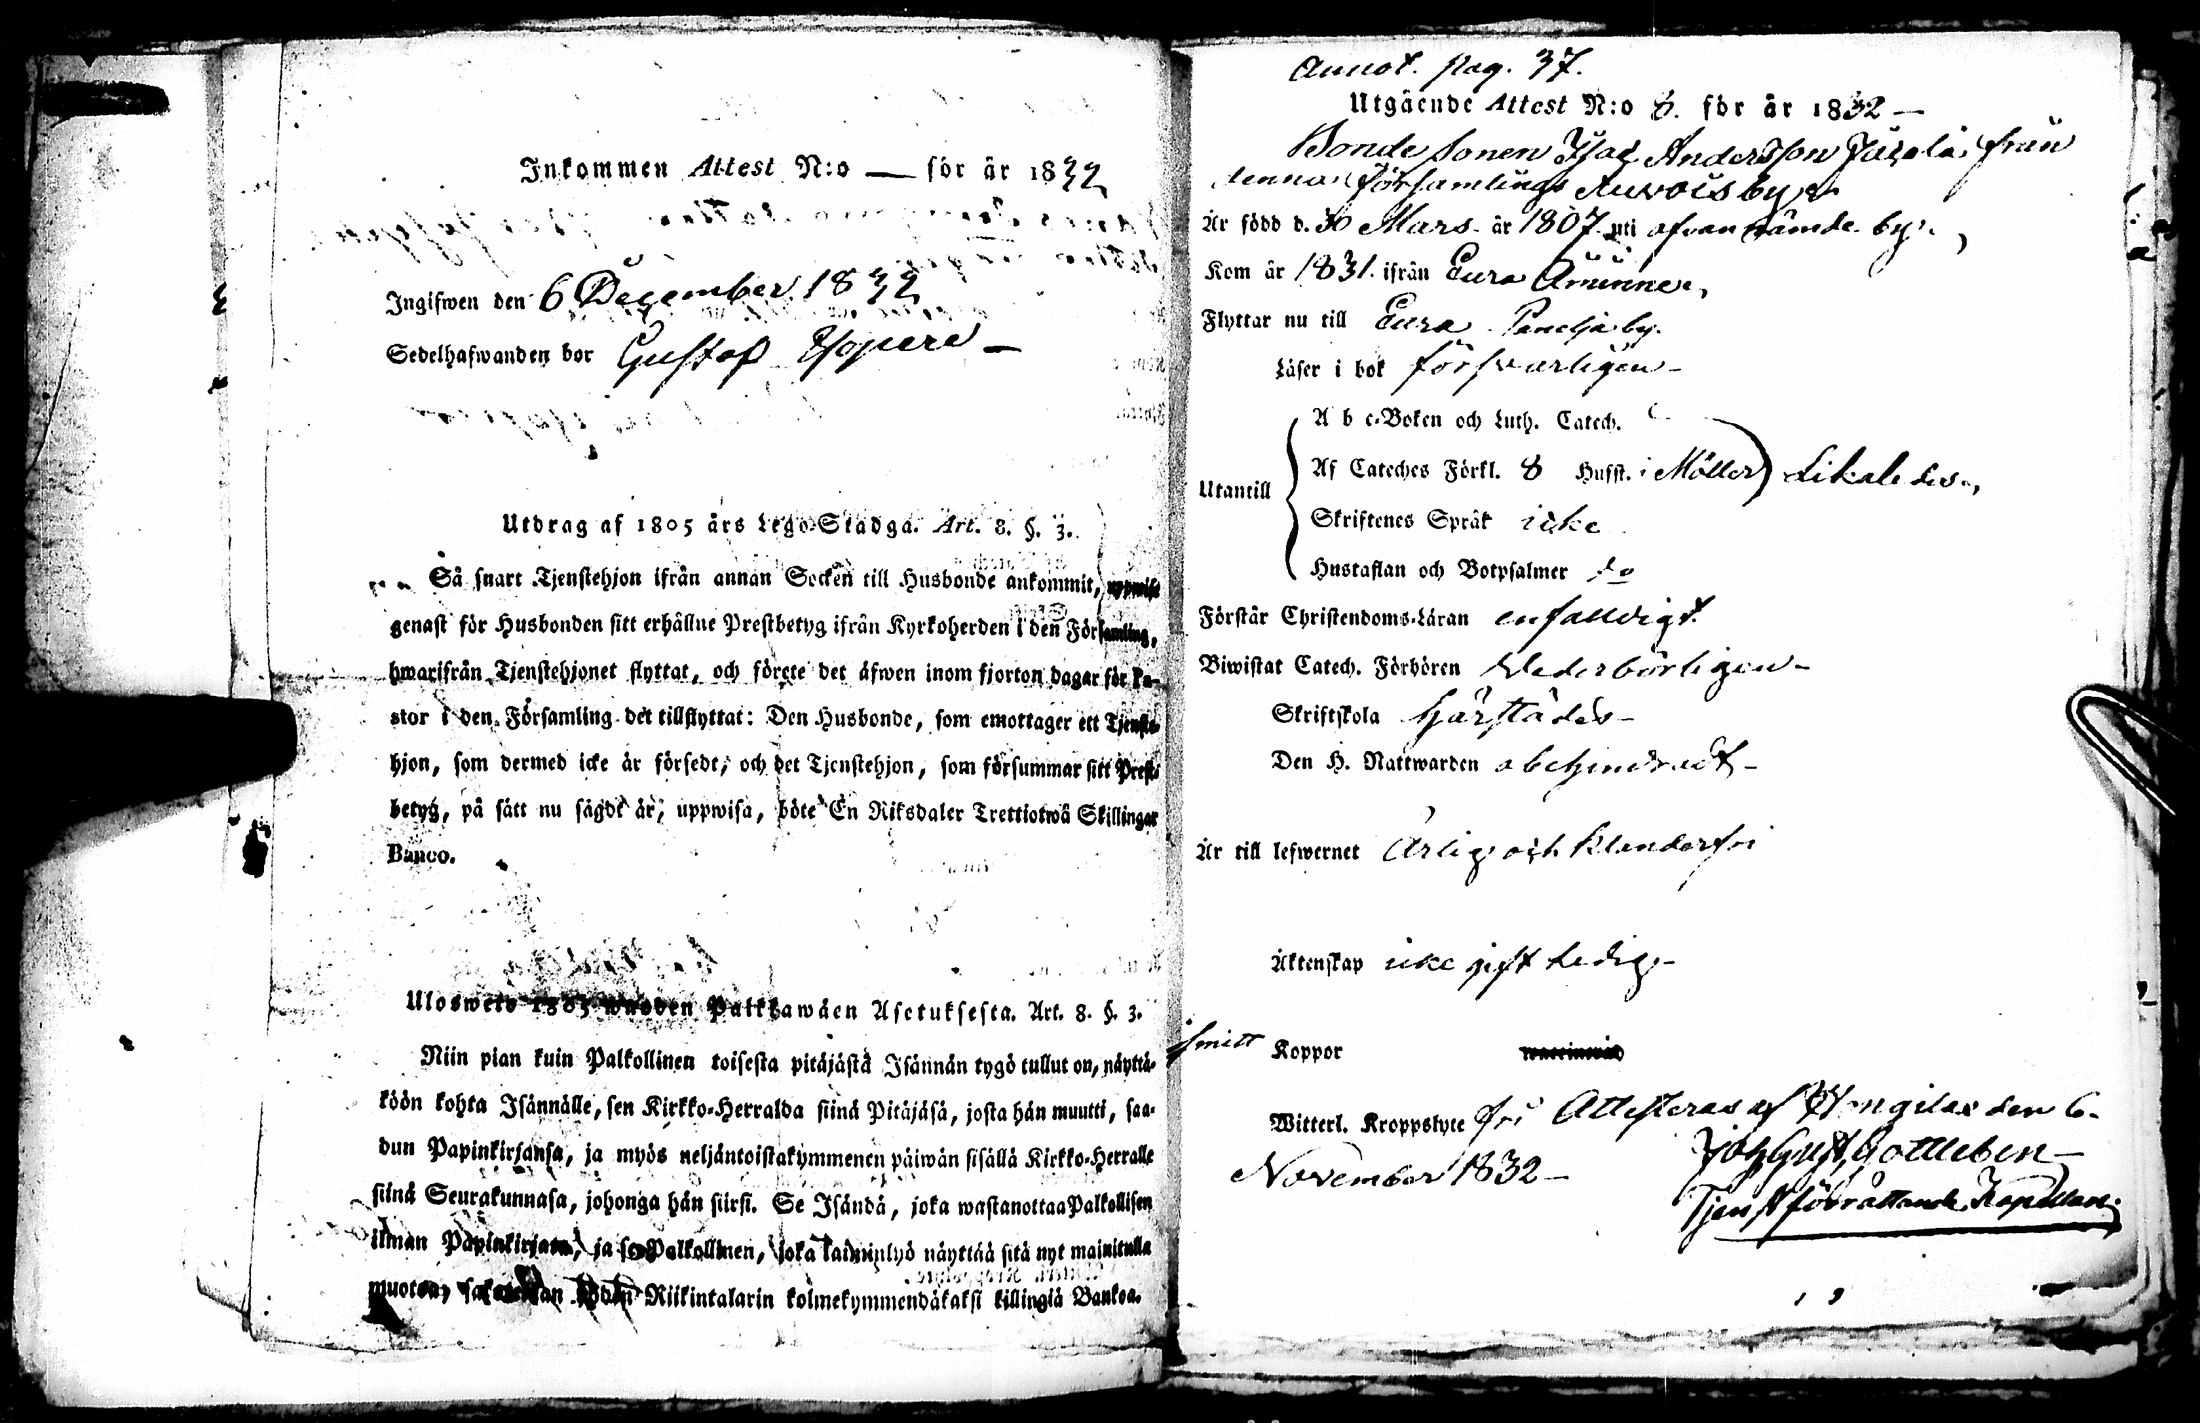 Inkommen Attest N:o — för år 1832
Ingifwen den 6 December 1832
Sedelhafwanden bor Gustaf
Utdrag af 1805 års Lego-Stadga. Art. 8. §. 3.
Så snart Tjenstehjon ifrån annan Socken till Husbonde ankommit, uppwise
genast för Husbonden sitt erhållne Prestbetyg ifrån Kyrkoherden i den Församling,
hwarifrån Tjenstehjonet flyttat, och förete det äfwen inom fjorton dagar för Pa-
stor i den Församling det tillflyttat: Den Husbonde, som emottager ett Tjenste-
hjon, som dermed icke är försedt, och det Tjenstehjon, som försummar sitt Prest-
betyg, på sätt nu sagdt är, uppwisa, böte En Riksdaler Trettiotwå Skillingar
Banco.
Ulosweto 1805 wuoden Palkkawäen Asetuksesta. Art. 8. §. 3.
Niin pian kuin Palkollinen toisesta pitäjästä Isännän tygö tullut on, näyttä-
köön kohta Isännälle, sen Kirkko-Herralda siinä Pitäjäsä, josta hän muutti, saa-
dun Papinkirjansa, ja myös neljäntoistakymmenen päiwän sisällä Kirkko-Herralle
siinä Seurakunnasa, johonga hän siirsi. Se Isändä, joka wastanottaa Palkollisen
ilman Papinkirjata, ja se Palkollinen, joka laiminlyö näyttää sitä nyt mainitulla
muotoa, sakotetaan Riikintalarin kolmekymmendäkaksi killingiä Bankoa.
Annot. pag. 37.
Utgående Attest N:o 6. för år 1832 —
Bonde sonen Isac Andersson från
denna församlings by
Är född d. 30 Mars. år 1807. uti ofvan nämde by.
Kom år 1831. ifrån Eura
Flyttar nu till Eura Panelja by.
Läser i bok försvarligen –
A b c-Boken och Luth. Catech.
Utantill Af Cateches Förkl. 8 Hufst. i Möller Likaledes
Skriftenes Språk icke
Hustaflan och Botpsalmer do
Förstår Christendoms-Läran enfalldigt.
Biwistat Catech. Förhören Wederbörligen –
Skriftskola härstädes –
Den H. Nattwarden obehindradt –
Är till lefwernet Ärlig och klanderfri
Äktenskap icke gift Ledig –
Koppor
Witterl. Kroppslyte fri Attesteras af den 6.
November 1832 – Joh Gust Gottleben
Tjenstförrättande Kapellan.